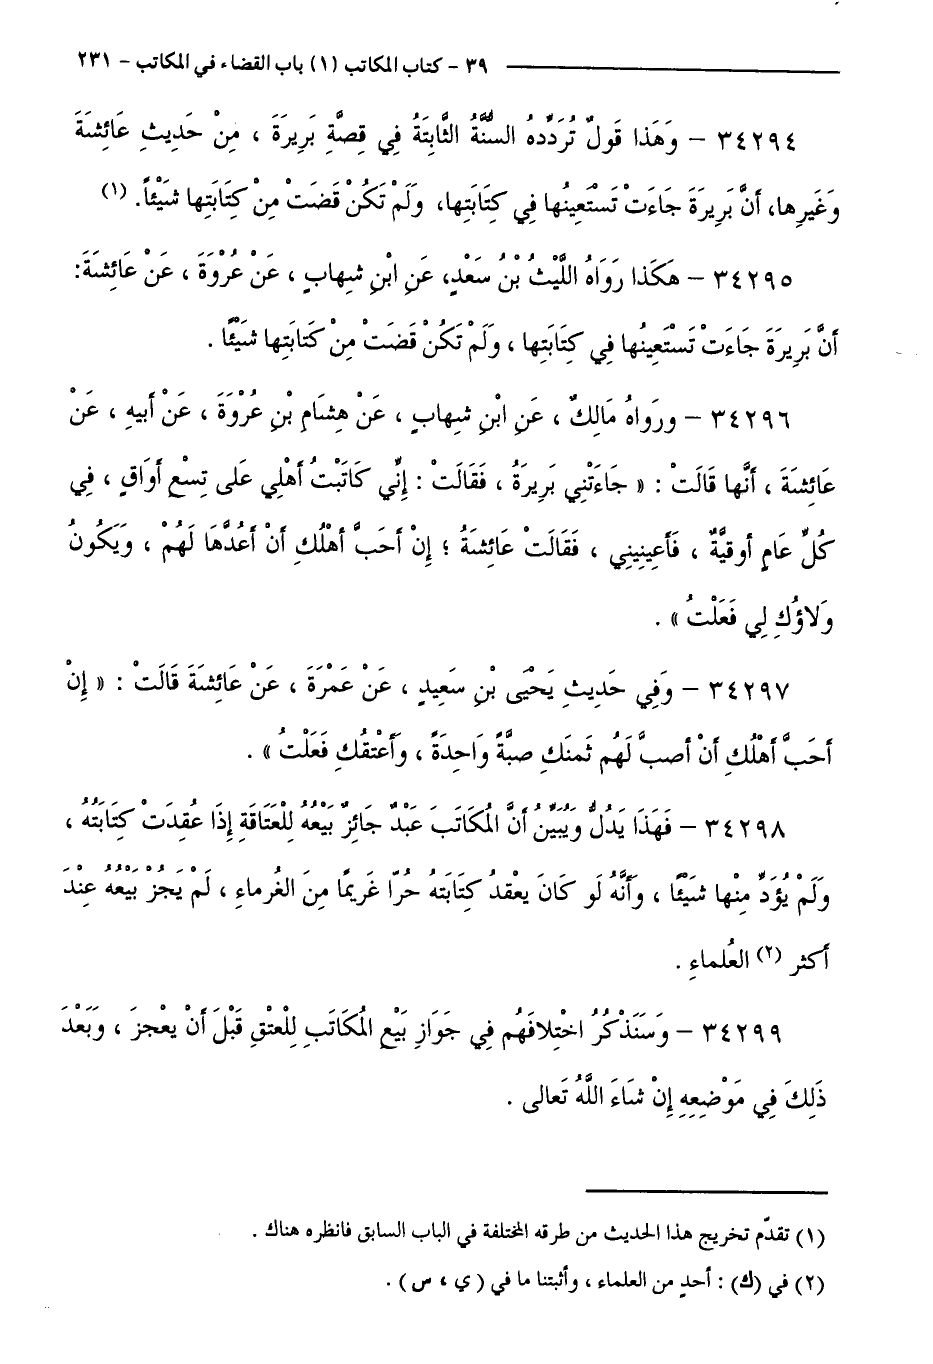 ٣٩ - كتاب المكاتب (١) باب القضاء في المكاتب - ٢٣١
٣٤٢٩٤ - وَهَذا قَولٌ تُرَدِّدُه السُّنَّةُ الثَّابِتَةُ فِي قِصَّةِ بَرِيرَةَ ، مِنْ حَدِيثِ عَائِشَةَ
وَغَيرِها، أنَّ بَرِيرَةَ جَاءَتْ تَسْتَعِينُها فِي كِتَابَتِها، وَلَمْ تَكُنْ قَضَتْ مِنْ كِتَابَتِها شَيْئاً. (١)
٣٤٢٩٥ - هَكَذا رَوَاهُ اللَّيْثُ بْنُ سَعْدٍ، عَنِ ابْنِ شِهابٍ ، عَنْ عُرْوَةَ ، عَنْ عَائِشَةَ:
أنَّ بَرِيرَةَ جَاءَتْ تَسْتَعِينُها فِي كِتَابَتِها ، وَلَمْ تَكُنْ قَضَتْ مِنْ كَتَابَتِها شَيْئًا .
٣٤٢٩٦ - ورَواهُ مَالِكٌ ، عَنِ ابْنِ شِهابٍ ، عَنْ هِشَامِ بْنِ عُرْوَةَ ، عَنْ أَبيهِ ، عَنْ
عَائِشَةَ ، أنَّها قَالَتْ : « جَاءَتْنِي بَرِيرَةُ ، فَقَالَتْ : إِنِّي كَاتَبْتُ أهْلِي عَلى تِسْعِ أوَاقٍ ، فِي
كُلِّ عَامٍ أوقيَّةٌ ، فَأعِينِينِي ، فَقَالَتْ عَائِشَةُ ؛ إِنْ أحَبَّ أهْلُكِ أنْ أعُدَّهَا لَهُمْ ، وَيَكُونُ
وَلاؤُكِ لِي فَعَلْتُ » .
٣٤٢٩٧ - وَفِي حَدِيثِ يَحْيَى بْنِ سَعِيدٍ ، عَنْ عَمْرَةَ ، عَنْ عَائِشَةَ قَالَتْ : « إِنْ
أحَبَّ أهْلُكِ أنْ أصبَّ لَهُم ثَمنَكِ صبَّةً وَاحِدَةً ، وَأعْتقُكِ فَعَلْتُ » .
٣٤٢٩٨ - فَهَذَا يَدُلُّ وَيُبَيِّنُ أنَّ المُكَاتَبَ عَبْدٌ جَائِزٌ بَيْعُهُ لِلْعَتَاقَةِ إِذَا عُقِدَتْ كِتَابَتُهُ ،
وَلَمْ يُؤَدِّ مِنْها شَيْئًا ، وَأنَّهُ لَو كَانَ يعْقدُ كِتَابَتهُ حُرّا غَرِيمًا مِنَ الغُرماءِ ، لَمْ يَجُزْ بَيْعُهُ عِنْدَ
أكثرِ (٢) العُلماءِ .
٣٤٢٩٩ - وَسَنَذْكُرُ اخْتِلافَهُم فِي جَوَازِ بَيْعِ المُكَاتَبِ لِلْعِتْقِ قَبْلَ أنْ يعْجزَ ، وَبَعْدَ
ذَلِكَ فِي مَوْضِعِهِ إِنْ شَاءَ اللَّهُ تَعالى .
(١) تقدّم تخريج هذا الحديث من طرقه المختلفة في الباب السابق فانظره هناك .
(٢) في (ك) : أحدٍ من العلماء ، وأثبتنا ما في ( ي ، س ) .